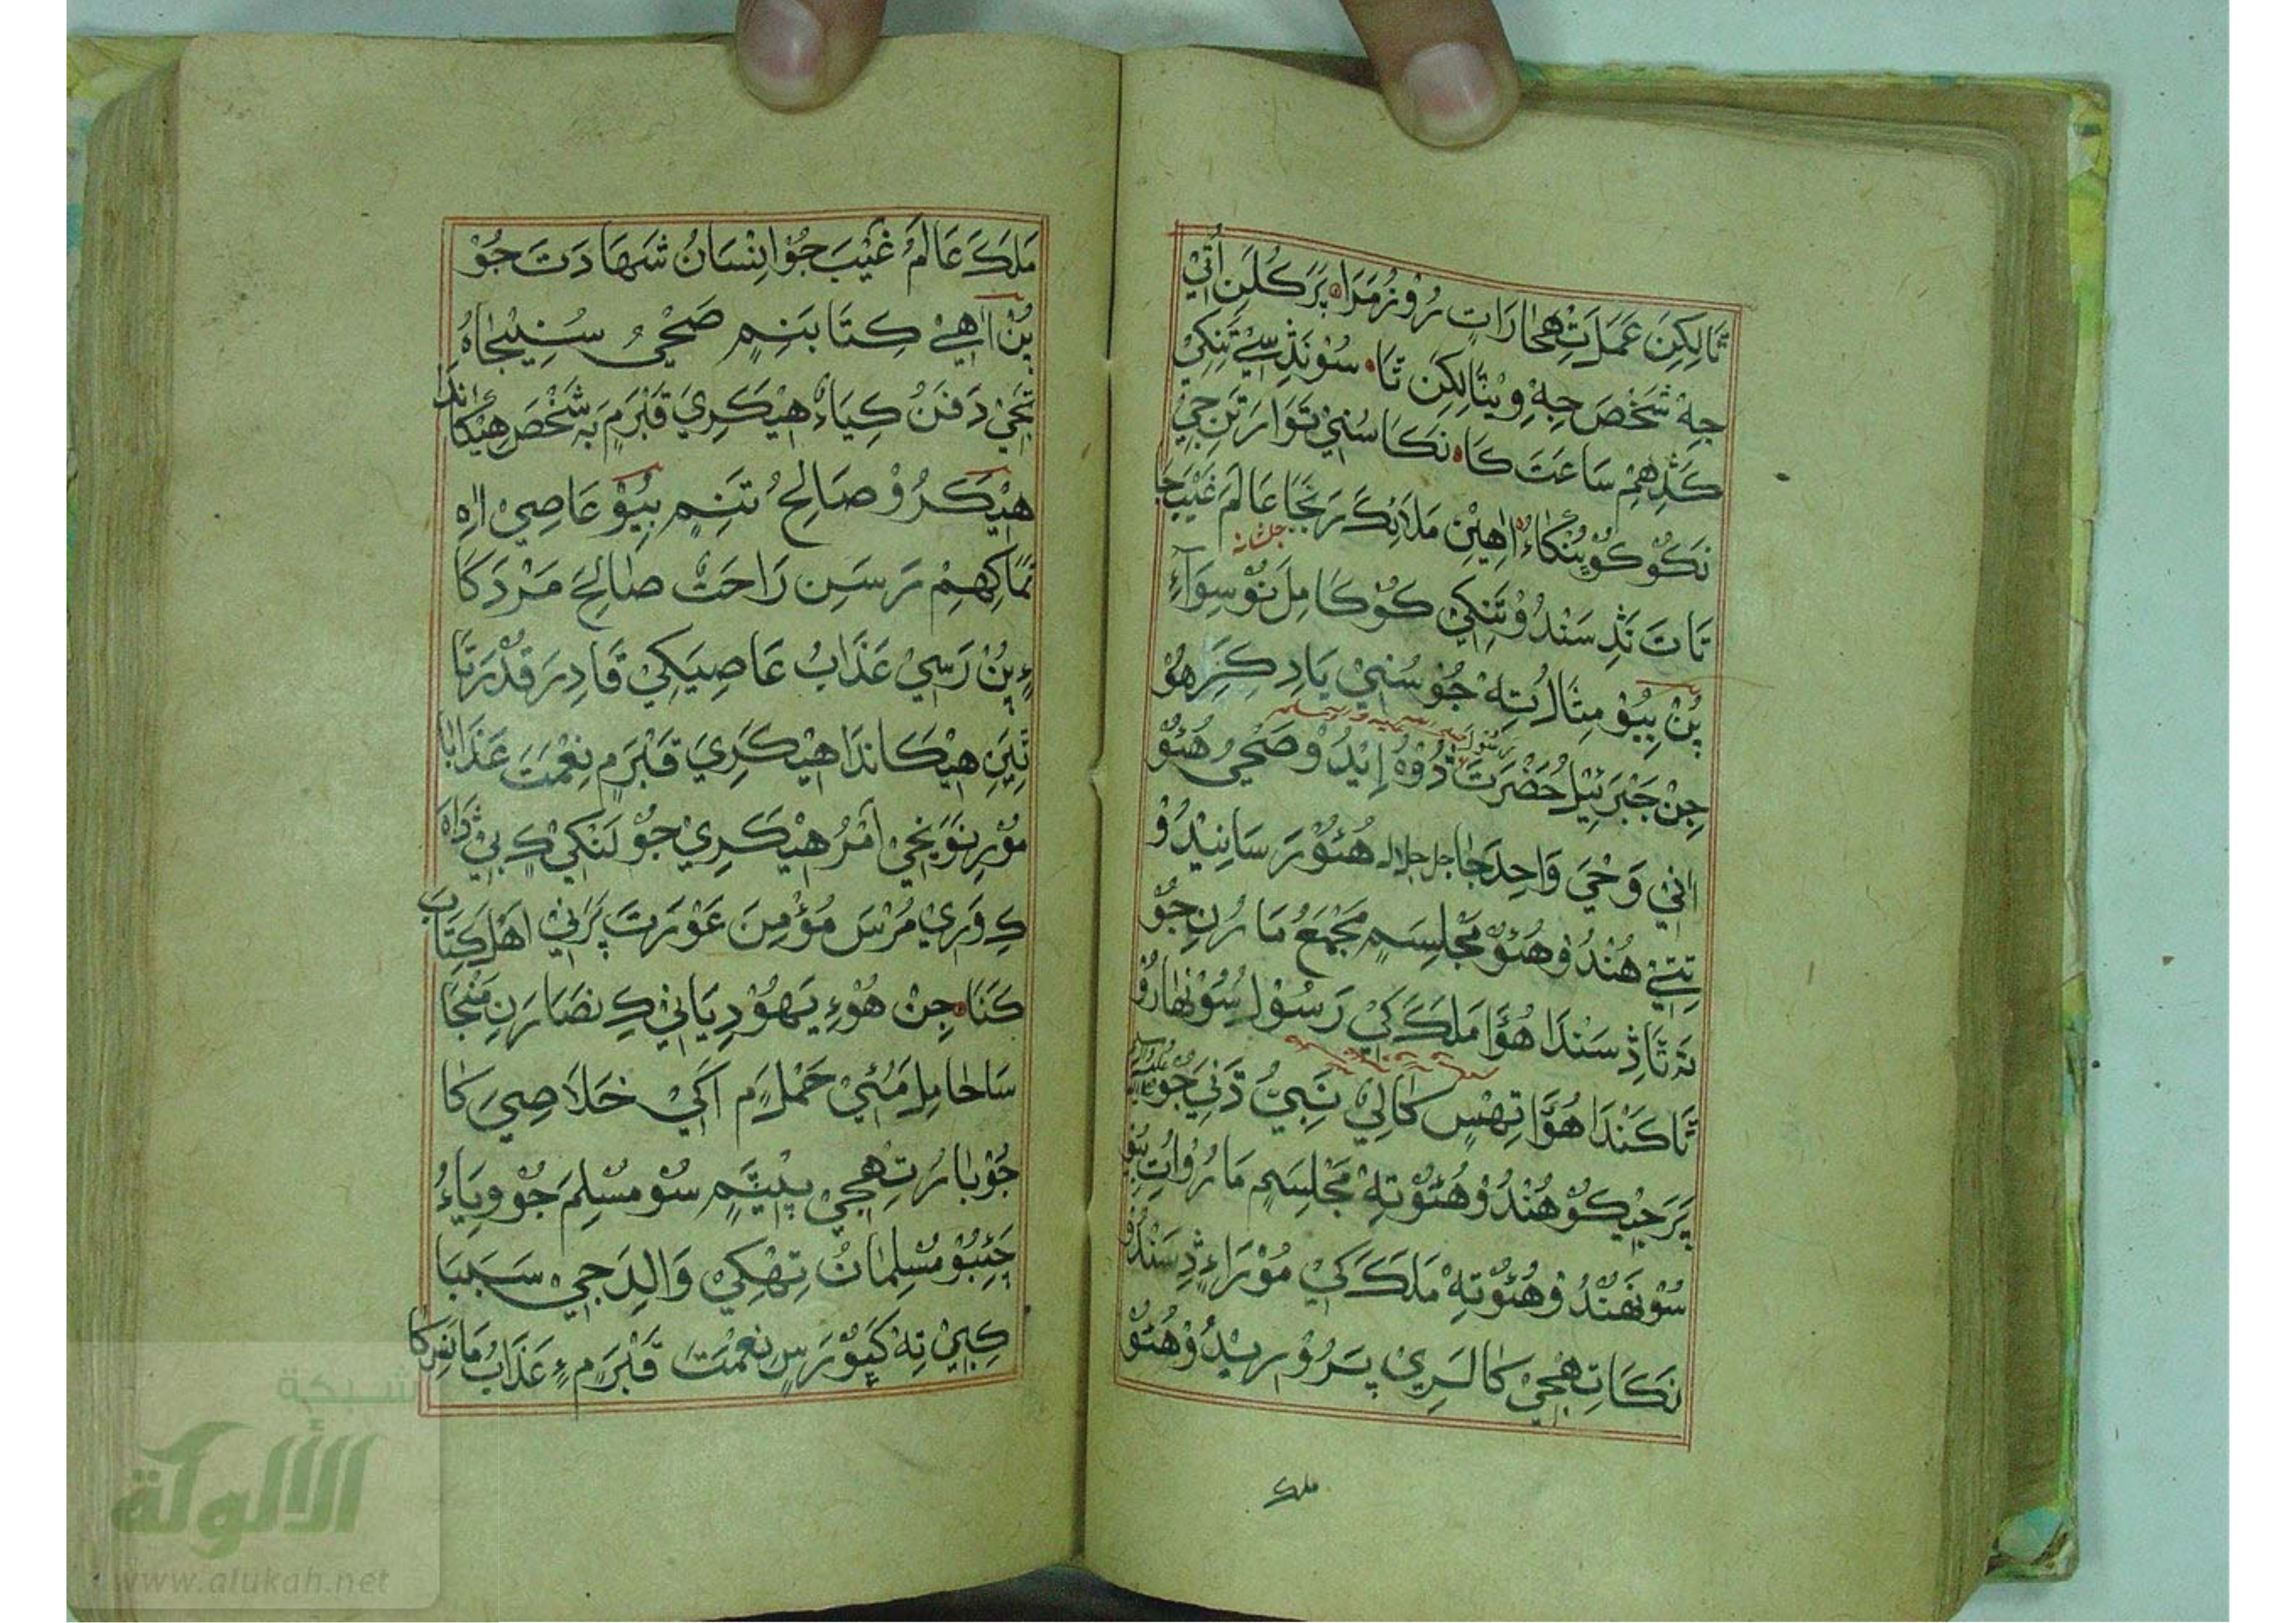 ثَا لِکِنِ عَمَلَ تِهِجَا رَاتِ رُوْزُ مَرَاہ پَرَ کُلَنِ اُتِيْ
جِهْ شَخْصَ جِهْ وِيْثَا لِکِنِ ثَاہ سُوْ نَڎِسِيْ تَنِکِيْ
کَڎِهِمْ سَاعَتَ کَاہ نَکَا سُنِيْ تَوَارَ تَنِ جِيْ
نَکُوْ کُوْ پُنکَاءُ اٰهِيْنِ مَلَائِکَ رَبَّجَا عَالَمَ غَيْبَ جَا
جلشانه
تَاتَ نَڎِسَنْدُوْ تَنِکِيْ کُوْ کَامِلَ نُوْ سِوَآءِ
پُنْ بِيُوْ مِثَالُ تِهْ جُوْ سُنِيْ يَادِ کَرِ هُوْ
جِنْ جَبْرَئِيْلُ حَضْرَتَ ڎُوْهْ اِيْدُوْ صَحْيُ هُئُوْ
اٰنِيْ وَحْيَ وَاحِدَ جَا جل جلاله هُئُوْ رَسَانِيْدُوْ
تِتِيْ هُنْدُوْ هُئُوْ مَجْلِسَمِ مَجْمَعُ مَارُنِ جُوْ
تَہ تَاڎِسَنْدَا هُؤَا مَلَکَ کِيْ رَسُوْلُ سُوْنهَارُوْ
ثَا کَنْدَا هُؤَا تِهْسِ کَالِيْ نَبِيُّ ڌَنِيَ جُوْ
پَرَ جِيْکُوْ هُنْدُوْ هُئُوْ تِهْ مَجْلِسَمِ مَارُوْ اُتِ
سُوْنَهُنْدُوْ هُئُوْ تِهْ مَلَکَ کِيْ مُوْرَاءِ ڎِسَنْدُوْ
نَکَا تِهْجِيْ کَالرِيْ پَرُوْرِيْدُوْ هُئُوْ
ملک
مَلَکَ عَالَمُ غَيْبَ جُوْ اِنْسَانُ شَهَادَتَ جُوْ
پُنْ اٰهِيْ کِتَابَنِمِ صَحْيُ سُنِيْجَاہُ
تَجِيْ دَفَنُ کِيَاءُ هِيْکَرِيَ قَبْرَمِ بَہ شَخْصَ هِيْکَاندَا
هِيْکَرُوْ صَالِحُ تَنِمِ بِيُوْ عَاصِيْ اٰهِ
ثَمَا کِهِمْ رَسَنِ رَاحَتَ صَالِحَ مَرْدَ کَا
ءٍ پُنْ رَسِيْ عَذَابُ عَاصِيَکِيْ قَادِرَ قُدْرَتَا
تِيَنِ هِيْکَاندَا هِيْکَرِيَ قَبْرَمِ نِعْمَتَ عَذَابَا
مُوْرِ نَوَيْجِيْ اَمْرُ هِيْکَرِيْ جُوْ لَنْکِيْ کِ بِيْ ڎَاہ
کِ وَرِيْ مُرْسَ مُؤْمِنَ عَوْرَتَ پَرَنِيْ اَهْلِ کِتَابَ
کَنَاہ جِنْ هُوْءِ يَهُوْدِيَانِيْ کِ نَصَارَنِ مَنْجَا
سَا حَامِلِ مَئِيْ حَمْلَمِ اَکِيْ خَلَاصِيَ کَا
جُوْ بَارُ تِهِجِيْ پيٽَمِ سُوْ مُسْلِمَ جُوْ وِيَاءُ
جَئِبُوْ مُسْلِمَانُ تِهْکِيْ وَالِدَ جِيْ سَبَبَا
کِبِيْ تِهْ کَپُوْ رَسِ نِعْمَتَ قَبْرَمِ ءٍ عَذَابُ مَانِسِ کَا
شبكة
الألوكة
www.alukah.net